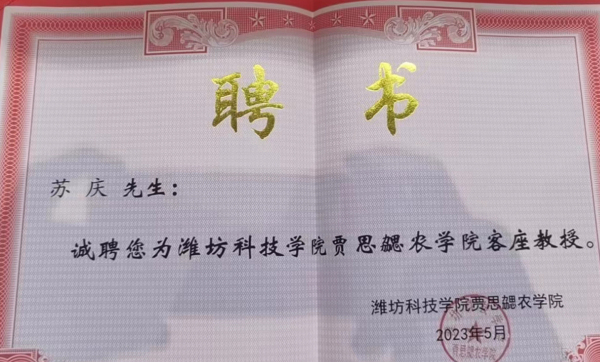 聘书
苏 庆 先生：
诚聘您为潍坊科技学院贾思勰农学院客座教授。
潍坊科技学院贾思勰农学院
2023年5月
贾思勰农学院